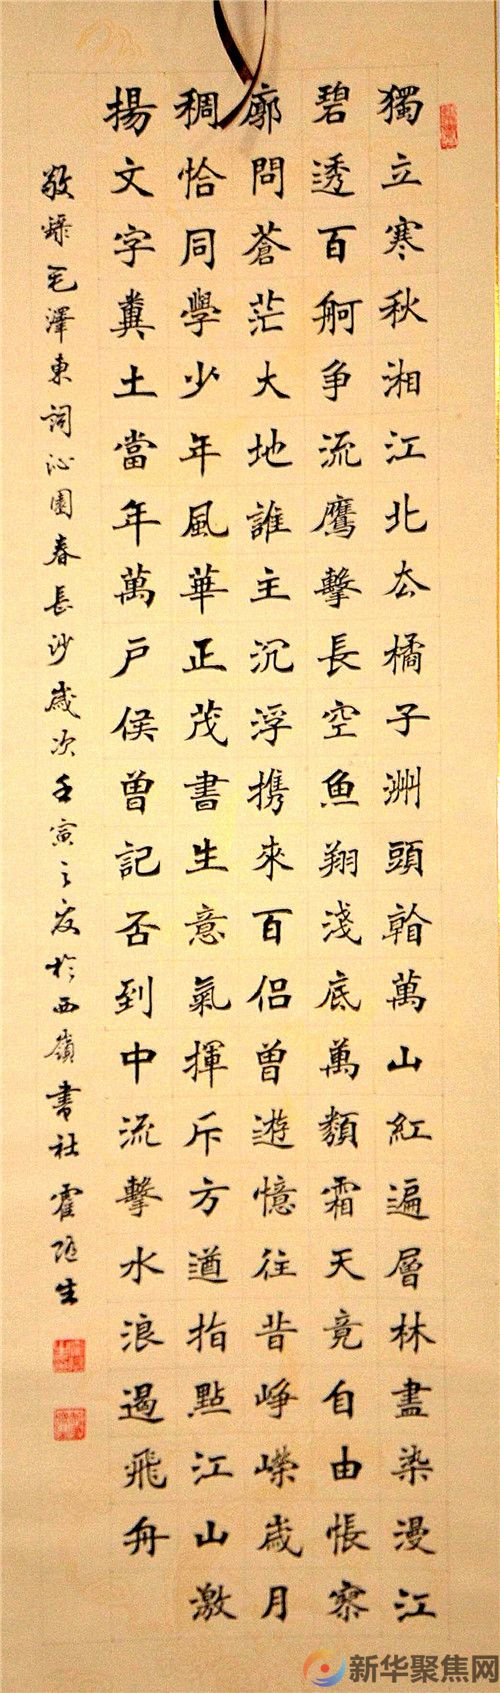 獨立寒秋湘江北厺橘子洲頭看萬山紅遍層林盡染漫江
碧透百舸争流鷹擊長空魚翔淺底萬類霜天竟自由悵寥
廓問蒼茫大地誰主沉浮携來百侣曾遊憶往昔崢嶸歲月
稠恰同學少年風華正茂書生意氣揮斥方遒指點江山激
揚文字糞土當年萬户侯曾記否到中流擊水浪遏飛舟
敬録毛澤東詞沁園春長沙歲次壬寅之夏於西嶺書社 霍生
新华聚焦网